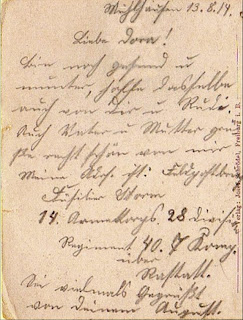 Mühlhausen 13.8.14.
Liebe Dora!
Bin noch gesund u
munter, hoffe dasselbe
auch von dir u Rudi
Auch Vater u Mutter grü
ße recht schön von mir
Meine Adr. ist: Feldpostbrief
Füsilier Worm
14. Armekorps 28 Divis
Regiment 40. 7 Komp.
über
Rastatt.
Sei vielmals Gegrüßt
von deinem August.
Freiburg i. B.